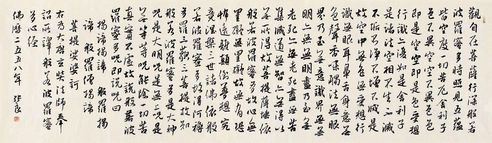 觀自在菩薩行深般若
波羅蜜多時照見五蘊
皆空度一切苦厄舍利子
色不異空空不異色色
即是空空即是色受想
行識亦復如是舍利子
是諸法空相不生不滅
不垢不淨不增不減是
故空中無色無受想行
識無眼耳鼻舌身意無
色聲香味觸法無眼
界乃至無意識界無無
明亦無無明盡乃至無
老死亦無老死盡無苦
集滅道無智亦無得以
無所得故菩提薩埵依
般若波羅蜜多故心無
罣礙無罣礙故無有恐
怖遠離顛倒夢想究
竟涅槃三世諸佛依
般若波羅蜜多故得阿耨
多羅三藐三菩提故知
般若波羅蜜多是大神
咒是大明咒是無上咒是
無等等咒能除一切苦
真實不虛故說般若波
羅蜜多咒即說咒曰
揭諦揭諦 般羅揭
諦 般羅僧揭諦
菩提薩婆訶
右大唐三藏法師奉
詔所譯般若波羅蜜
多心經
佛曆二五五八年